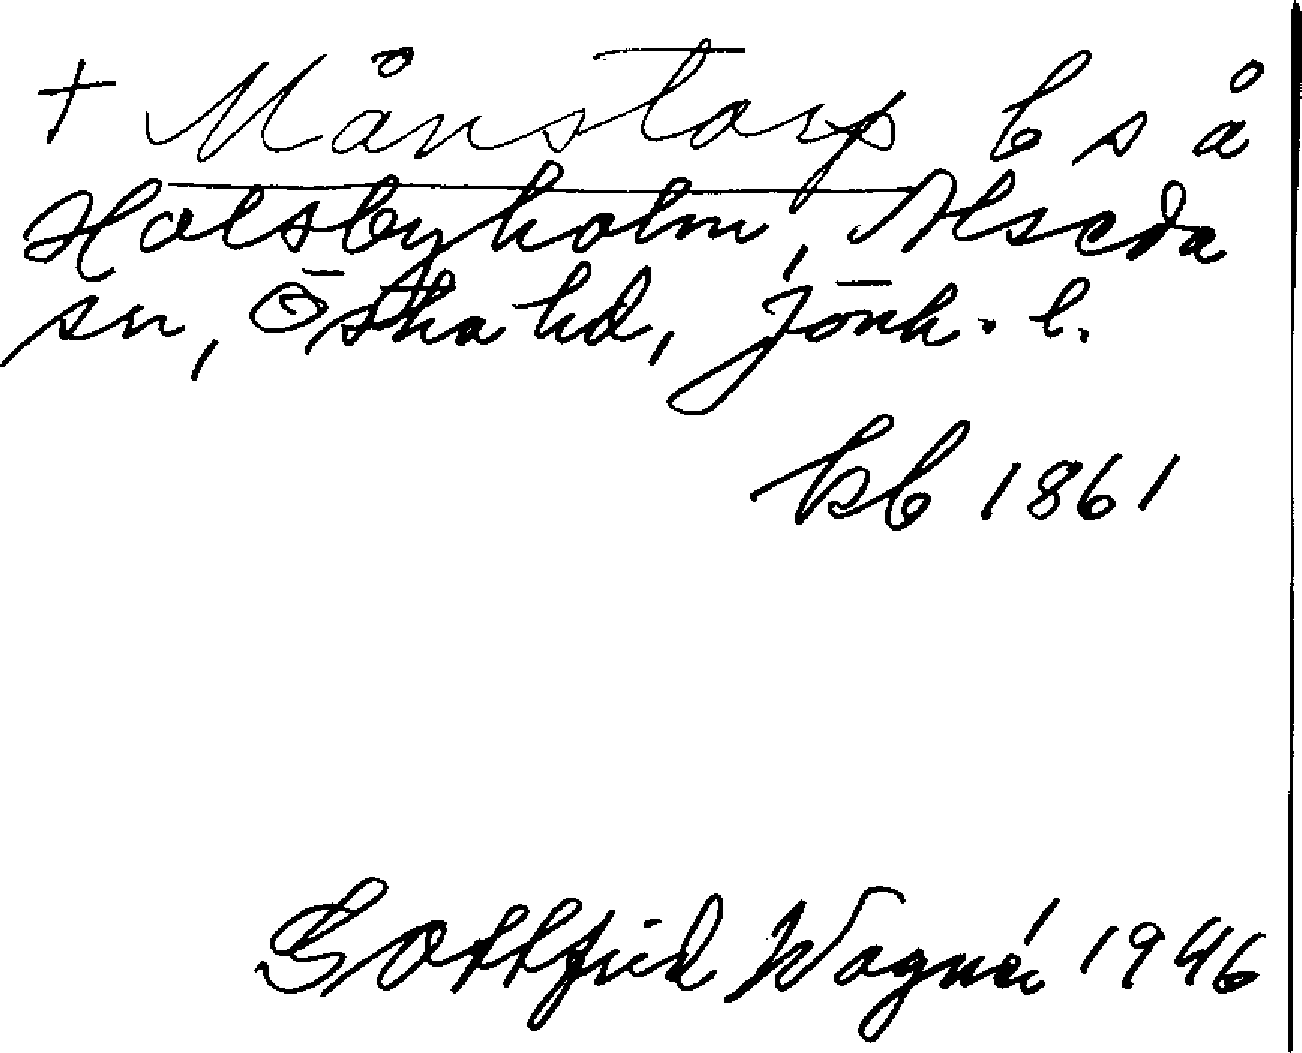 † Månstorp b s å
Holsbyholm, Alseda
sn, Östra hd, Jönk. l.
kb 1861
Gottfrid Wagnér 1946